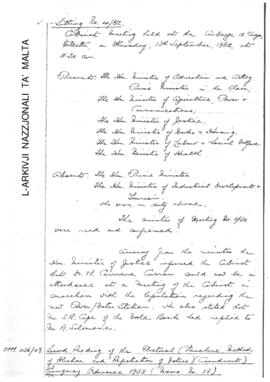 Sitting No. 4/62
Cabinet Meeting held at the Auberge d'Aragon,
Valletta, on Thursday, 13th September, 1962, at
11.30 am.
Present: The Hon. Minister of Education and Acting
Prime Minister in the Chair,
The Hon. Minister of Agriculture, Power &
Communications,
The Hon. Minister of Justice,
The Hon. Minister of Works & Housing,
The Hon. Minister of Labour & Social Welfare
The Hon. Minister of Health
Absent: The Hon. Prime Minister
The Hon. Minister of Industrial Development &
Tourism
who were on duty abroad.
The minutes of Meeting No. 3/62
were read and confirmed.
Arising from the minutes the
Hon. Minister of Justice informed the Cabinet
that Dr. could now be in
attendance at a Meeting of the Cabinet in
connection with the legislation regarding the
new Power Station. He also stated that
Mr. of the Gold Bank had replied to
Mr. A.
OPM. Second Reading of the Electoral (Franchise, Method
of Election and Registration of Voters) (Amendment)
Emergency Ordinance 1962 (Memo. No. 18)
L-ARKIVJI NAZZJONALI TA' MALTA